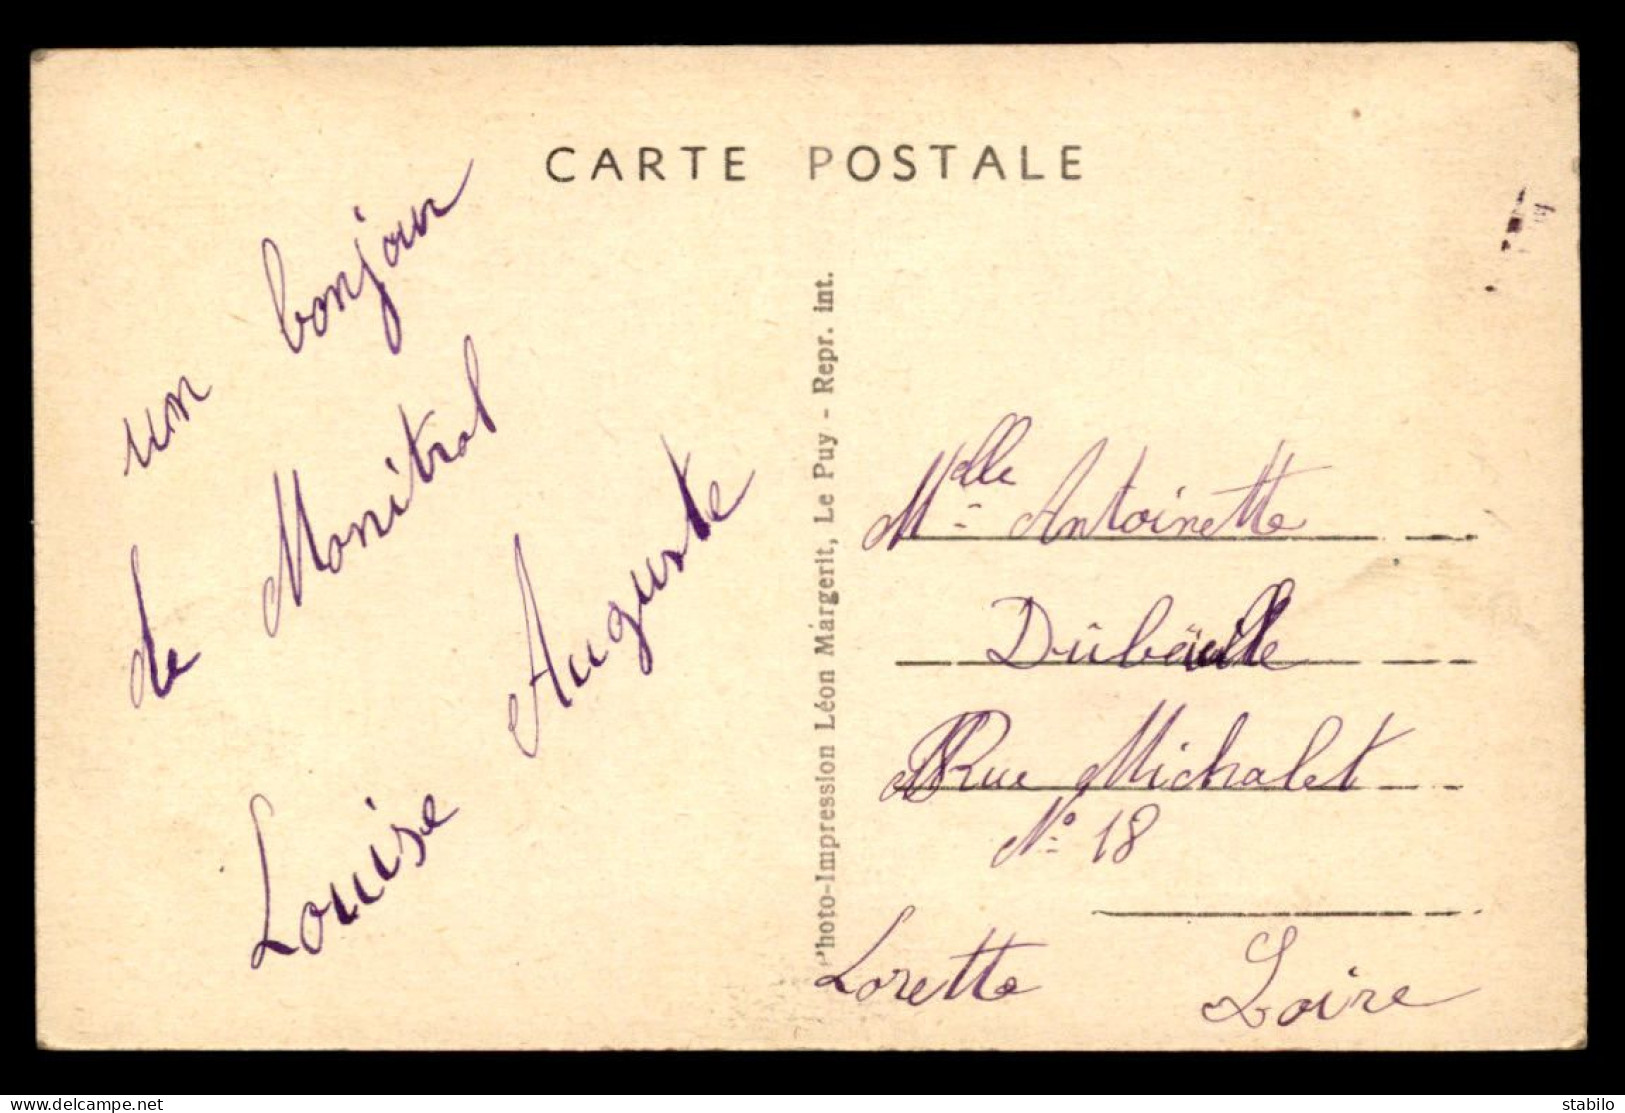 CARTE POSTALE
un bonjour
de Monitrol
Louise Auguste
Photo-Impression Léon Margerit, Le Puy - Repr. int.
Melle Antoinette
Rue Michalet
No 18
Lorette Loire
www.delcampe.net
stabilo